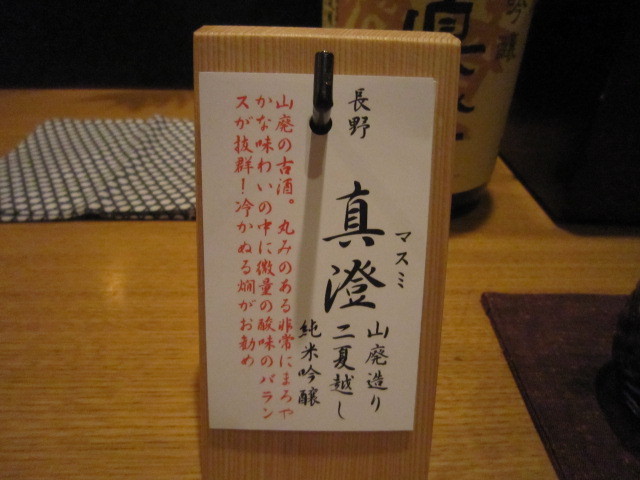 長野
真澄
マスミ
山廃造り
二夏越し
純米吟醸
山廃の古酒。丸みのある非常にまろや
かな味わいの中に微量の酸味のバラン
スが抜群！冷かぬる燗がお勧め
吟醸